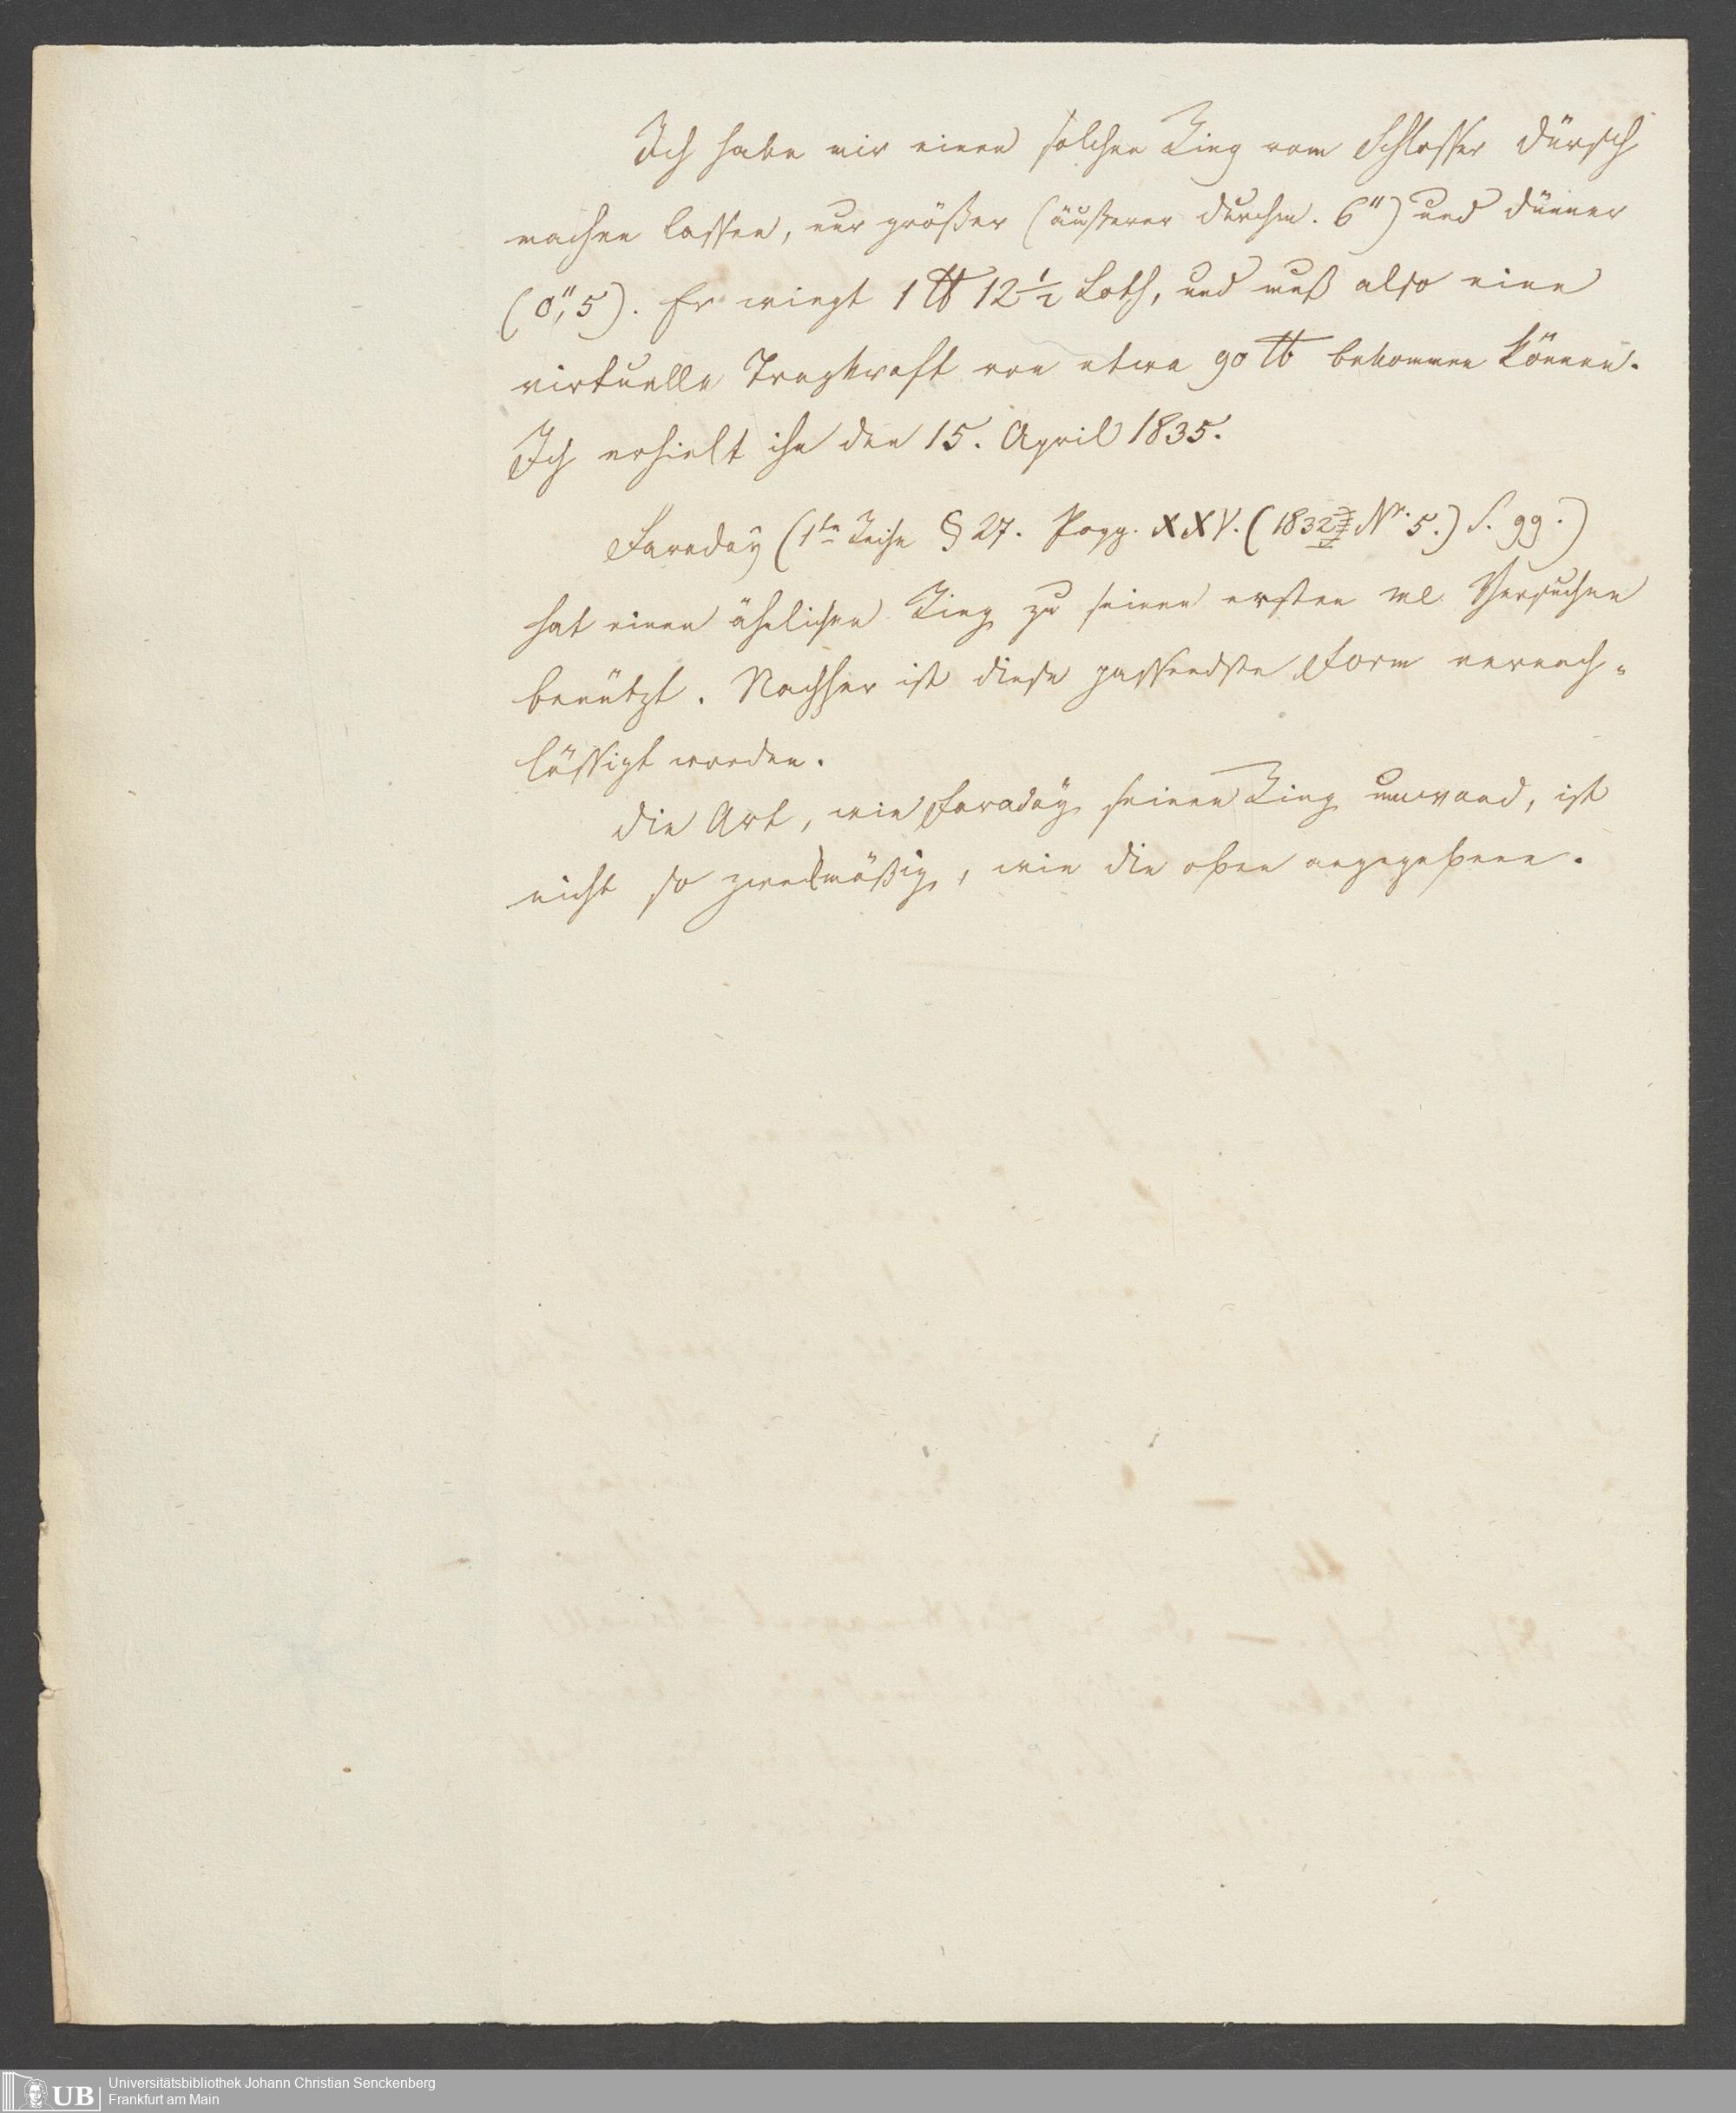 Ich habe mir einen solchen Ring vom Schlosser Dürsch
machen lassen, nur größer (äußerer Durchm. 6") und dünner
(0",5). Er wiegt 1 ℔ 12½ Loth, und muß also eine
virtuelle Tragkraft von etwa 90 ℔ bekommen können.
Ich erhielt ihn den 15. April 1835.
Faraday (1te Reihe § 27. Pogg. XXV. (1832 Nr. 5.) S. 99.)
hat einen ähnlichen Ring zu seinen ersten Versuchen
benützt. Nachher ist diese passendste Form vernach-
lässigt worden.
Die Art, wie Faraday seinen Ring umwand, ist
nicht so zweckmäßig, wie die oben angegebene.
UB Universitätsbibliothek Johann Christian Senckenberg
Frankfurt am Main